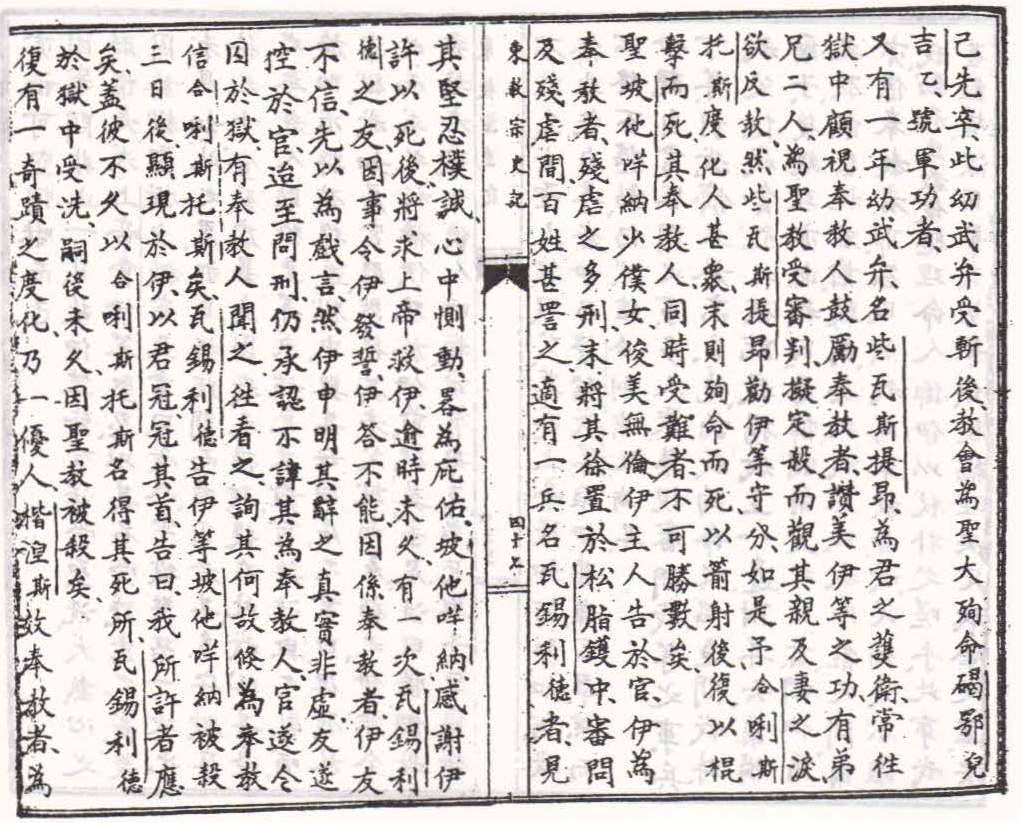 己先卒、此幼武弁受斬後教會為聖大殉命碣鄂兒
吉乙號軍功者、
又有一年幼武弁、名些瓦斯提昂、為君之護衛、常徃
獄中顧視奉教人鼓勵奉教者、讚美伊等之功、有弟
兄二人、為聖教受審判、擬定殺而觀其親及妻之淚、
欲反教、然些瓦斯提昂勸伊等守分、如是予合唎斯
托斯度化人甚衆、末則殉命而死、以箭射後、復以棍
擊而死、其奉教人同時受難者、不可勝數矣、
聖坡他咩納少僕女、俊美無倫、伊主人告於官、伊為
奉教者、殘虐之多刑、末將其徐置於松脂鑊中、審問
及殘虐間、百姓甚詈之、適有一兵名瓦錫利德者、見
東教宗史記
四十七
其堅忍樸誠、心中惻動、畧為庇佑、坡他咩納、感謝伊
許以死後、將求上帝救伊、逾時未久、有一次瓦錫利
德之友、因事令伊發誓、伊答不能、因係奉教者、伊友
不信、先以為戲言、然伊申明其辭之真實非虛、友遂
控於官、迨至問刑、仍承認不諱其為奉教人、官遂令
囚於獄、有奉教人聞之、徃看之、詢其何故倏為奉教
信合唎斯托斯矣、瓦錫利德告伊等坡他咩納被殺
三日後、顯現於伊、以君冠冠其首、告曰、我所許者應
矣、蓋彼不久以合唎斯托斯名得其死所、瓦錫利德
於獄中受洗、嗣後未久、因聖教被殺矣、
復有一奇蹟之度化、乃一優人、楷湼斯效奉教者、為